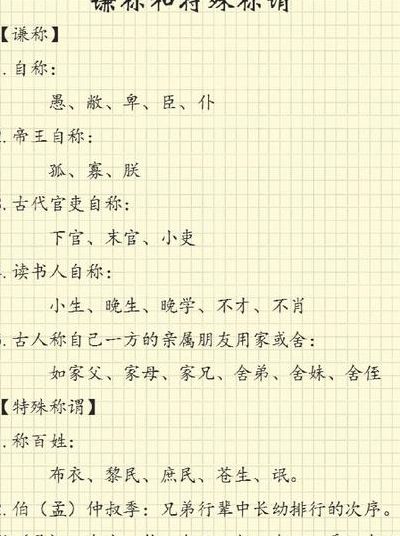 谦称和特殊称谓
【谦称】
1.自称：
愚、敝、卑、臣、仆
2.帝王自称：
孤、寡、朕
3.古代官吏自称：
下官、末官、小吏
4.读书人自称：
小生、晚生、晚学、不才、不肖
5.古人称自己一方的亲属朋友用家或舍：
如家父、家母、家兄、舍弟、舍妹、舍侄
【特殊称谓】
1.称百姓：
布衣、黎民、庶民、苍生、氓。
2.伯（孟）仲叔季：兄弟行辈中长幼排行的次序。